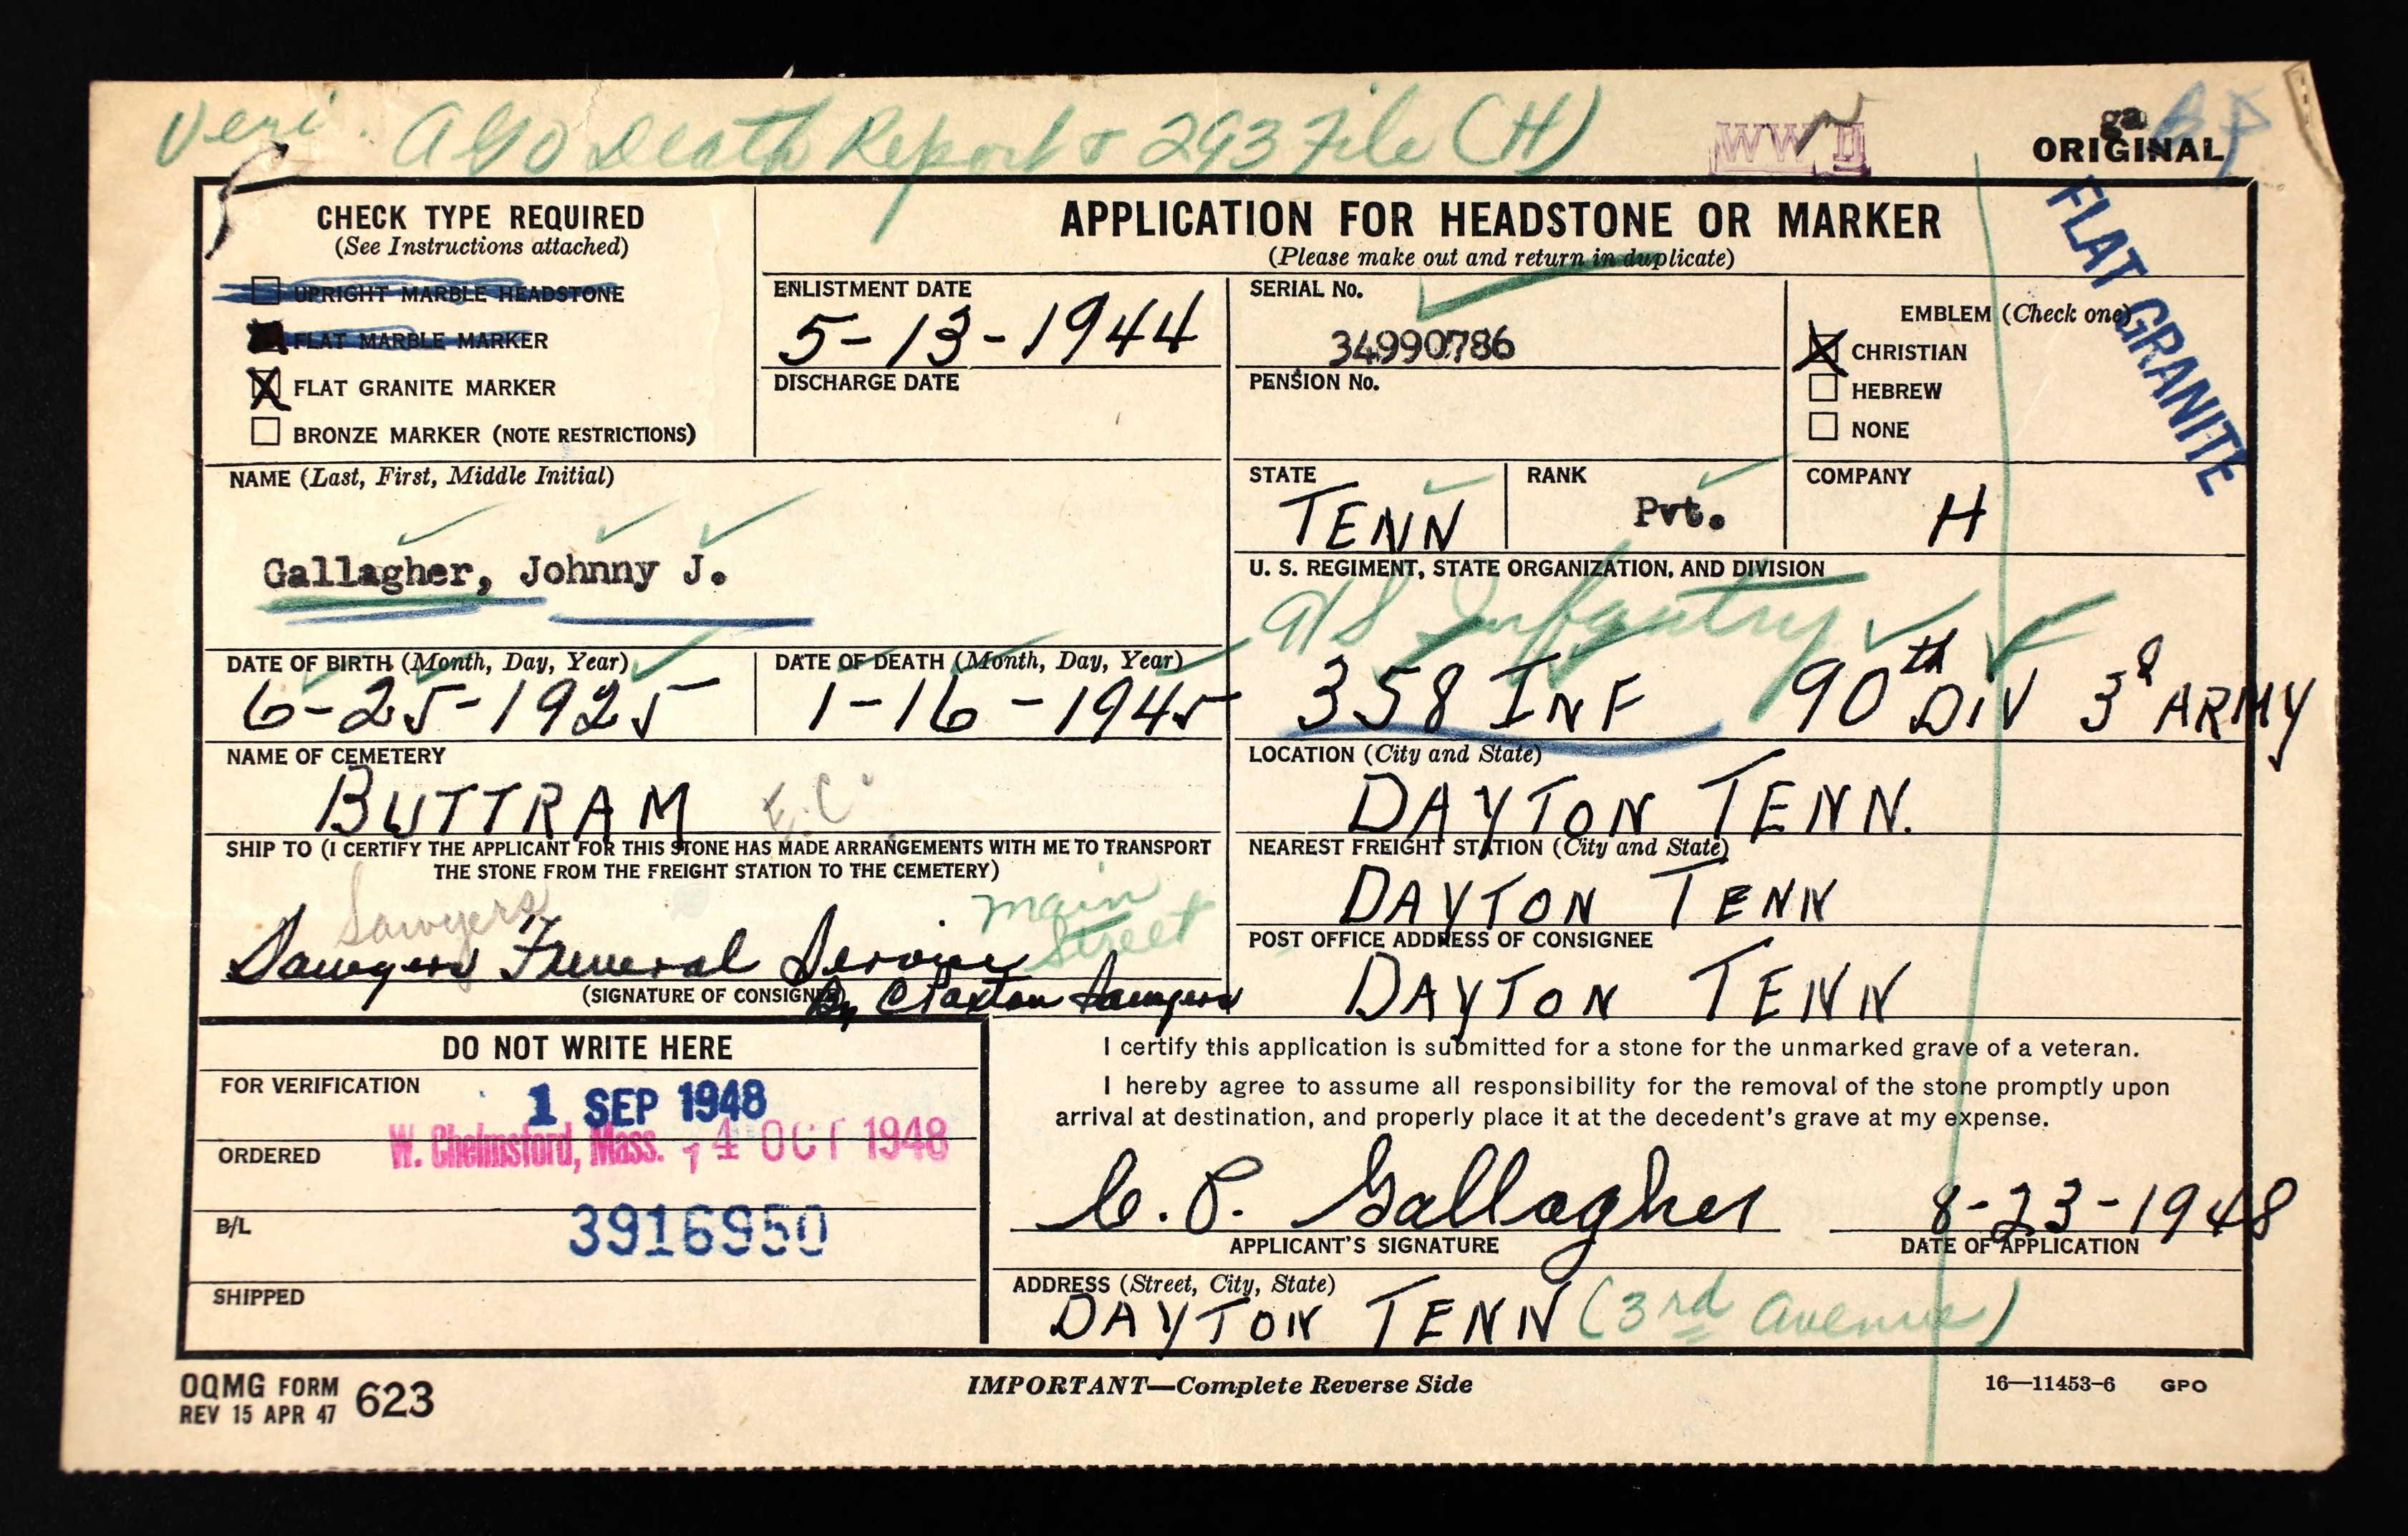 Veri. AGO Death Report & 293 File (H)
WW II
ga
ORIGINAL
FLAT GRANITE
CHECK TYPE REQUIRED
(See Instructions attached)
UPRIGHT MARBLE HEADSTONE
FLAT MARBLE MARKER
FLAT GRANITE MARKER
BRONZE MARKER (NOTE RESTRICTIONS)
APPLICATION FOR HEADSTONE OR MARKER
(Please make out and return in duplicate)
ENLISTMENT DATE
5-13-1944
DISCHARGE DATE
SERIAL No.
34990786
PENSION No.
EMBLEM (Check one)
CHRISTIAN
HEBREW
NONE
NAME (Last, First, Middle Initial)
Gallagher, Johnny J.
STATE
TENN
RANK
Pvt.
COMPANY
H
U. S. REGIMENT, STATE ORGANIZATION, AND DIVISION
Infantry
358 INF 90th DIV 3d ARMY
DATE OF BIRTH (Month, Day, Year)
6-25-1925
DATE OF DEATH (Month, Day, Year)
1-16-1945
NAME OF CEMETERY
BUTTRAM E.C.
LOCATION (City and State)
DAYTON TENN.
SHIP TO (I CERTIFY THE APPLICANT FOR THIS STONE HAS MADE ARRANGEMENTS WITH ME TO TRANSPORT
THE STONE FROM THE FREIGHT STATION TO THE CEMETERY)
Sawyers
Main
Street
Sawyers Funeral Service
(SIGNATURE OF CONSIGNEE)
By Claxton Sawyers
NEAREST FREIGHT STATION (City and State)
DAYTON TENN
POST OFFICE ADDRESS OF CONSIGNEE
DAYTON TENN
DO NOT WRITE HERE
FOR VERIFICATION
1 SEP 1948
ORDERED
W. Chelmsford, Mass. 14 OCT 1948
B/L
3916950
SHIPPED
I certify this application is submitted for a stone for the unmarked grave of a veteran.
I hereby agree to assume all responsibility for the removal of the stone promptly upon
arrival at destination, and properly place it at the decedent's grave at my expense.
C. P. Gallagher
8-23-1948
APPLICANT'S SIGNATURE
DATE OF APPLICATION
ADDRESS (Street, City, State)
DAYTON TENN (3rd Avenue)
OQMG FORM 623
REV 15 APR 47
IMPORTANT—Complete Reverse Side
16—11453-6 GPO